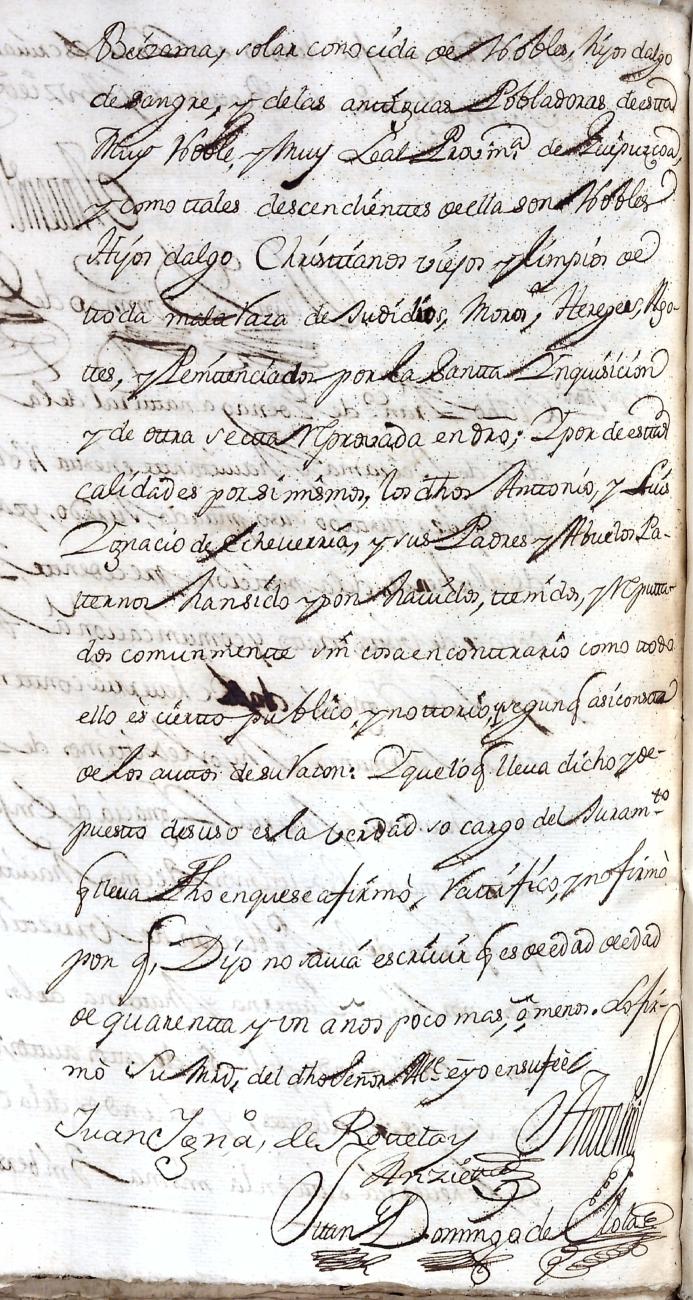 Beizama, solar conocida de Nobles, hijos dalgo
de sangre, y delas antiguas Pobladoras de esta
Muy Noble, y Muy Leal Prov.ª de Guipuzcoa,
y como ttales descendienttes de ella son Nobles
Hijos dalgo Christtianos viejos y limpios de
ttoda mala Raza de Judidios, Moros, Hereges, Ago-
ttes, y Penitenciados por la Santta Inquisicion
y de ottra sectta Reprovada en dro; Y por de esttas
calidades por si mismos, los dhos Anttonio, y Luis
Ygnacio de Echeverria, y sus Padres y Abuelos Pa-
tternos han sido y son havidos, ttenidos, y Reputta-
dos comunmentte sin cosa en conttrario como ttodo
ello es ciertto publico, y nottorio, y segun q asi constta
de los auttos de su Razon: Y que lo q lleva dicho y de-
puestto desuso es la verdad so cargo del Juram.to
q lleva Dho en que se afirmò, Rattificò, y no firmò
por q, Dijo no savia escrivir q es de edad de edad
de quarentta y un años poco mas, ò menos. Lo fir-
mò Su Mrd, del dho Señor Al.e è yo en su fèe
Juan Ygn.o de
Anttemi
Juan Domingo de